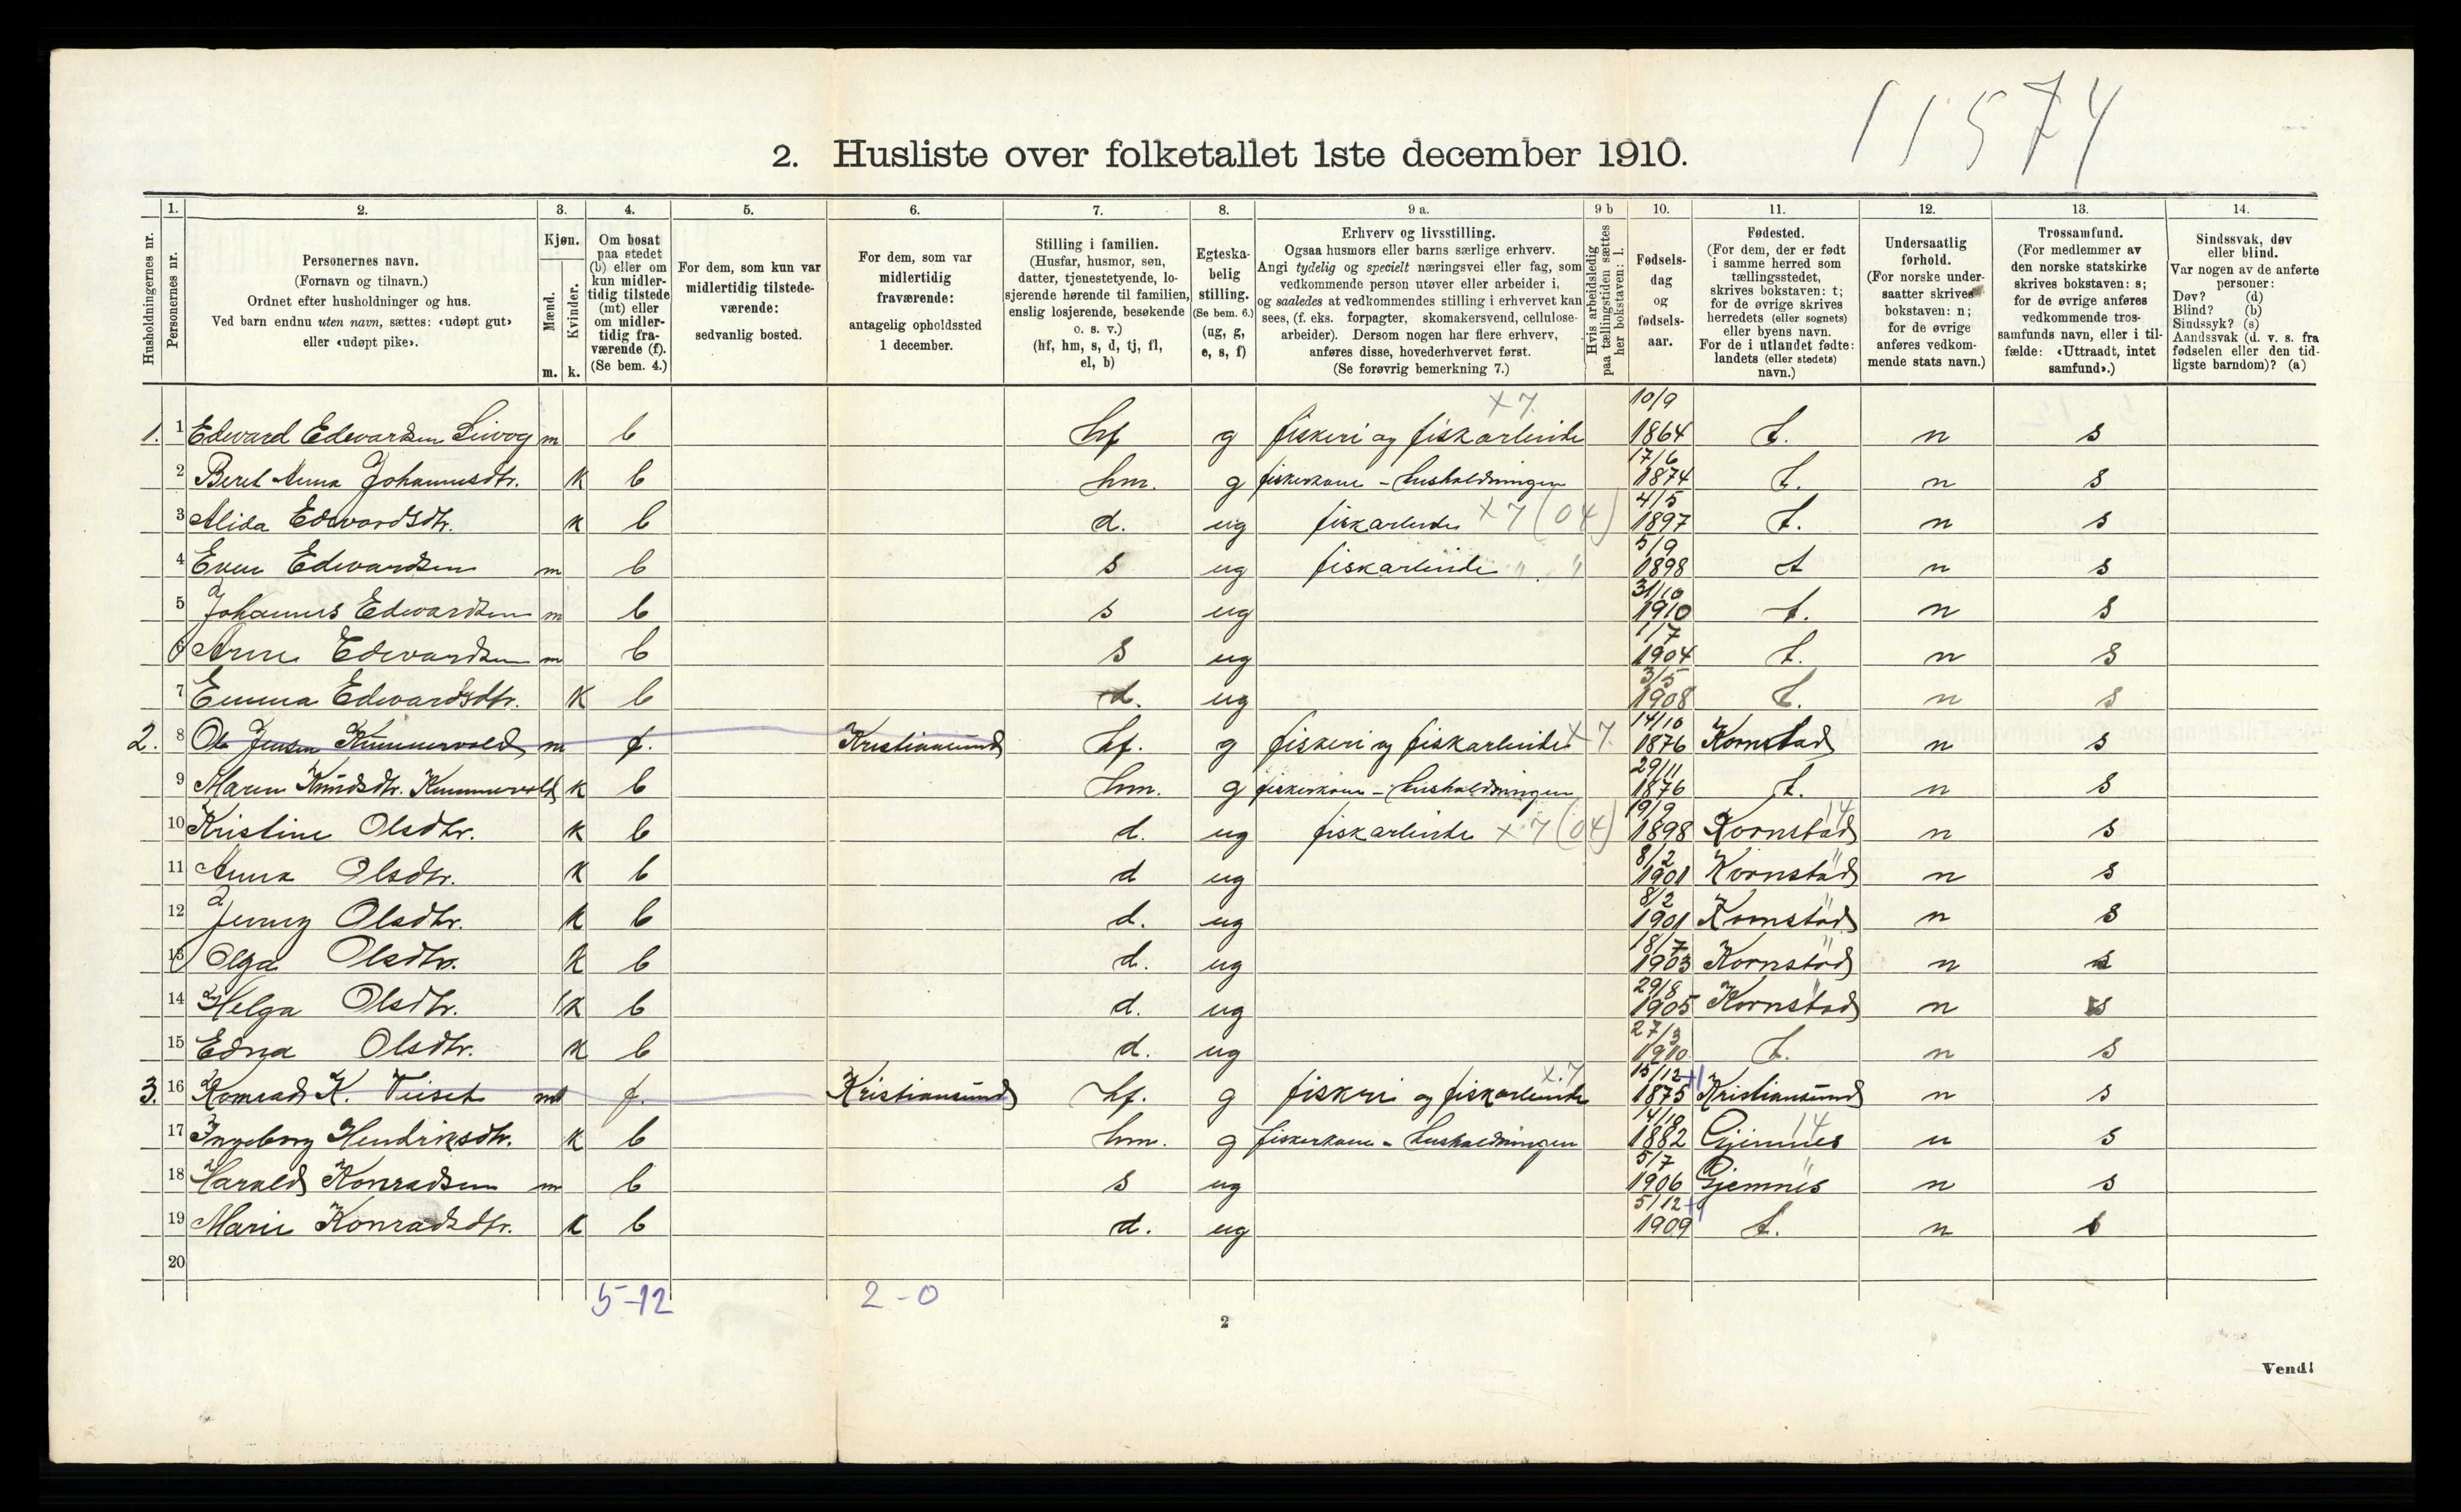 11574
2. Husliste over folketallet 1ste december 1910.
Husholdningernes nr.
1.
Personernes nr.
2.
Personernes navn.
(Fornavn og tilnavn.)
Ordnet efter husholdninger og hus.
Ved barn endnu uten navn, sættes: «udøpt gut»
eller «udøpt pike».
3.
Kjøn.
Mænd.
Kvinder.
m. k.
4.
Om bosat
paa stedet
(b) eller om
kun midler-
tidig tilstede
(mt) eller
om midler-
tidig fra-
værende (f).
(Se bem. 4.)
5.
For dem, som kun var
midlertidig tilstede-
værende:
sedvanlig bosted.
6.
For dem, som var
midlertidig
fraværende:
antagelig opholdssted
1 december.
7.
Stilling i familien.
(Husfar, husmor, søn,
datter, tjenestetyende, lo-
sjerende hørende til familien,
enslig losjerende, besøkende
o. s. v.)
(hf, hm, s, d, tj, fl,
el, b)
8.
Egteska-
belig
stilling.
(Se bem. 6.)
(ug, g,
e, s, f)
9 a.
Erhverv og livsstilling.
Ogsaa husmors eller barns særlige erhverv.
Angi tydelig og specielt næringsvei eller fag, som
vedkommende person utøver eller arbeider i,
og saaledes at vedkommendes stilling i erhvervet kan
sees, (f. eks. forpagter, skomakersvend, cellulose-
arbeider). Dersom nogen har flere erhverv,
anføres disse, hovederhvervet først.
(Se forøvrig bemerkning 7.)
9 b
Hvis arbeidsledig
paa tællingstiden sættes
her bokstaven: l.
10.
Fødsels-
dag
og
fødsels-
aar.
11.
Fødested.
(For dem, der er født
i samme herred som
tællingsstedet,
skrives bokstaven: t;
for de øvrige skrives
herredets (eller sognets)
eller byens navn.
For de i utlandet fødte:
landets (eller stedets)
navn.)
12.
Undersaatlig
forhold.
(For norske under-
saatter skrives
bokstaven: n;
for de øvrige
anføres vedkom-
mende stats navn.)
13.
Trossamfund.
(For medlemmer av
den norske statskirke
skrives bokstaven: s;
for de øvrige anføres
vedkommende tros-
samfunds navn, eller i til-
fælde: «Uttraadt, intet
samfund».)
14.
Sindssvak, døv
eller blind.
Var nogen av de anførte
personer:
Døv? (d)
Blind? (b)
Sindssyk? (s)
Aandssvak (d. v. s. fra
fødselen eller den tid-
ligste barndom)? (a)
1. 1 Edvard Edvardsen m b hf g fiskeri og fiskarbeide x7 10/9 1864 t. n s
2 Beret Anna Johannesdtr. k b hm. g fiskerkone - husholdningen 17/6 1874 t. n s
3 Alida Edvardsdtr. k b d. ug fiskarbeide x7 (04) 4/5 1897 t. n s
4 Even Edvardsen m b s ug fiskarbeide " " 5/9 1898 t n s
5 Johannes Edvardsen m b s ug 31/10 1910 t. n s
6 Arne Edvardsen m b s ug 1/7 1904 t. n s
7 Emma Edvardsdtr. k b d. ug 3/5 1908 t. n s
2. 8 Ole Jensen Kummervold m f. Kristiansund hf. g fiskeri og fiskarbeide x7. 14/10 1876 Kornstad n s
9 Maren Knudsdtr. Kummervold k b hm. g fiskerkone - husholdningen 29/11 1876 t. n s
10 Kristine Olsdtr. k b d. ug fiskarbeide x7 (04) 19/9 1898 Kornstad 14 n s
11 Anna Olsdtr. k b d ug 8/2 1901 Kornstad " n s
12 Jenny Olsdtr. k b d. ug 8/2 1901 Kornstad " n s
13 Olga Olsdtr. k b d. ug 18/7 1903 Kornstad " n s
14 Helga Olsdtr. k b d. ug 29/8 1905 Kornstad " n s
15 Edna Olsdtr. k b d. ug 27/3 1910 t. n s
3. 16 Konrad K. m f. Kristiansund hf. g fiskeri og fiskarbeide x.7 15/12 1875 Kristiansund n s
17 Ingeborg Hendriksdtr. k b hm. g fiskerkone - husholdningen 14/10 1882 Gjemnes 14 n s
18 Harald Konradsen m b s ug 5/7 1906 Gjemnes " n s
19 Marie Konradsdtr. k b d. ug 5/12 1909 t. n s
20
5-12 2-0
2
Vend!